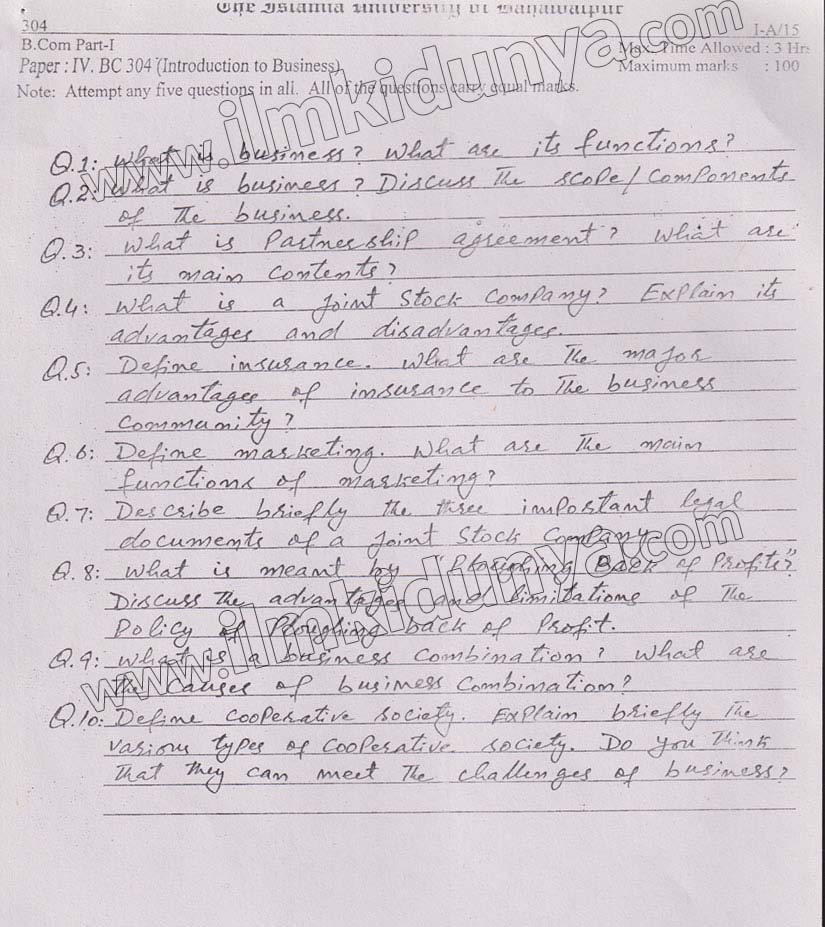 The Islamia University of Bahawalpur
304 I-A/15
B.Com Part-I Max. Time Allowed : 3 Hrs
Paper : IV. BC 304 (Introduction to Business) Maximum marks : 100
Note: Attempt any five questions in all. All of the questions carry equal marks.
Q.1: What is business? What are its functions?
Q.2: What is business? Discuss the scope/components
of the business.
Q.3: What is Partnership agreement? What are
its main contents?
Q.4: What is a Joint Stock Company? Explain its
advantages and disadvantages.
Q.5: Define insurance. What are the major
advantages of insurance to the business
Community?
Q.6: Define marketing. What are the main
functions of marketing?
Q.7: Describe briefly the three important legal
documents of a Joint Stock Company.
Q.8: What is meant by "Ploughing Back of Profits?"
Discuss the advantages and limitations of the
Policy of Ploughing back of Profit.
Q.9: What is a business Combination? What are
the causes of business Combination?
Q.10: Define Cooperative society. Explain briefly the
various types of Cooperative society. Do you think
that they can meet the challenges of business?
www.ilmkidunya.com
www.ilmkidunya.com